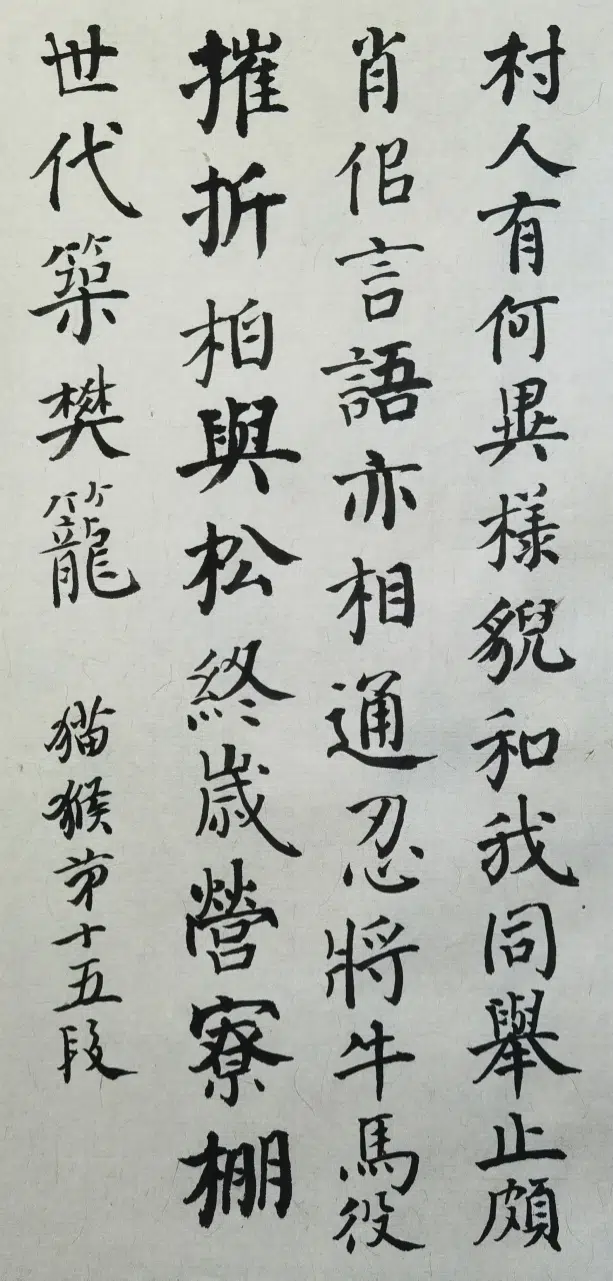 村人有何異様貌和我同舉止頗
肖佀言語亦相通忍將牛馬役
摧折柏與松終歲營寮棚
世代築樊籠
猫猴第十五段